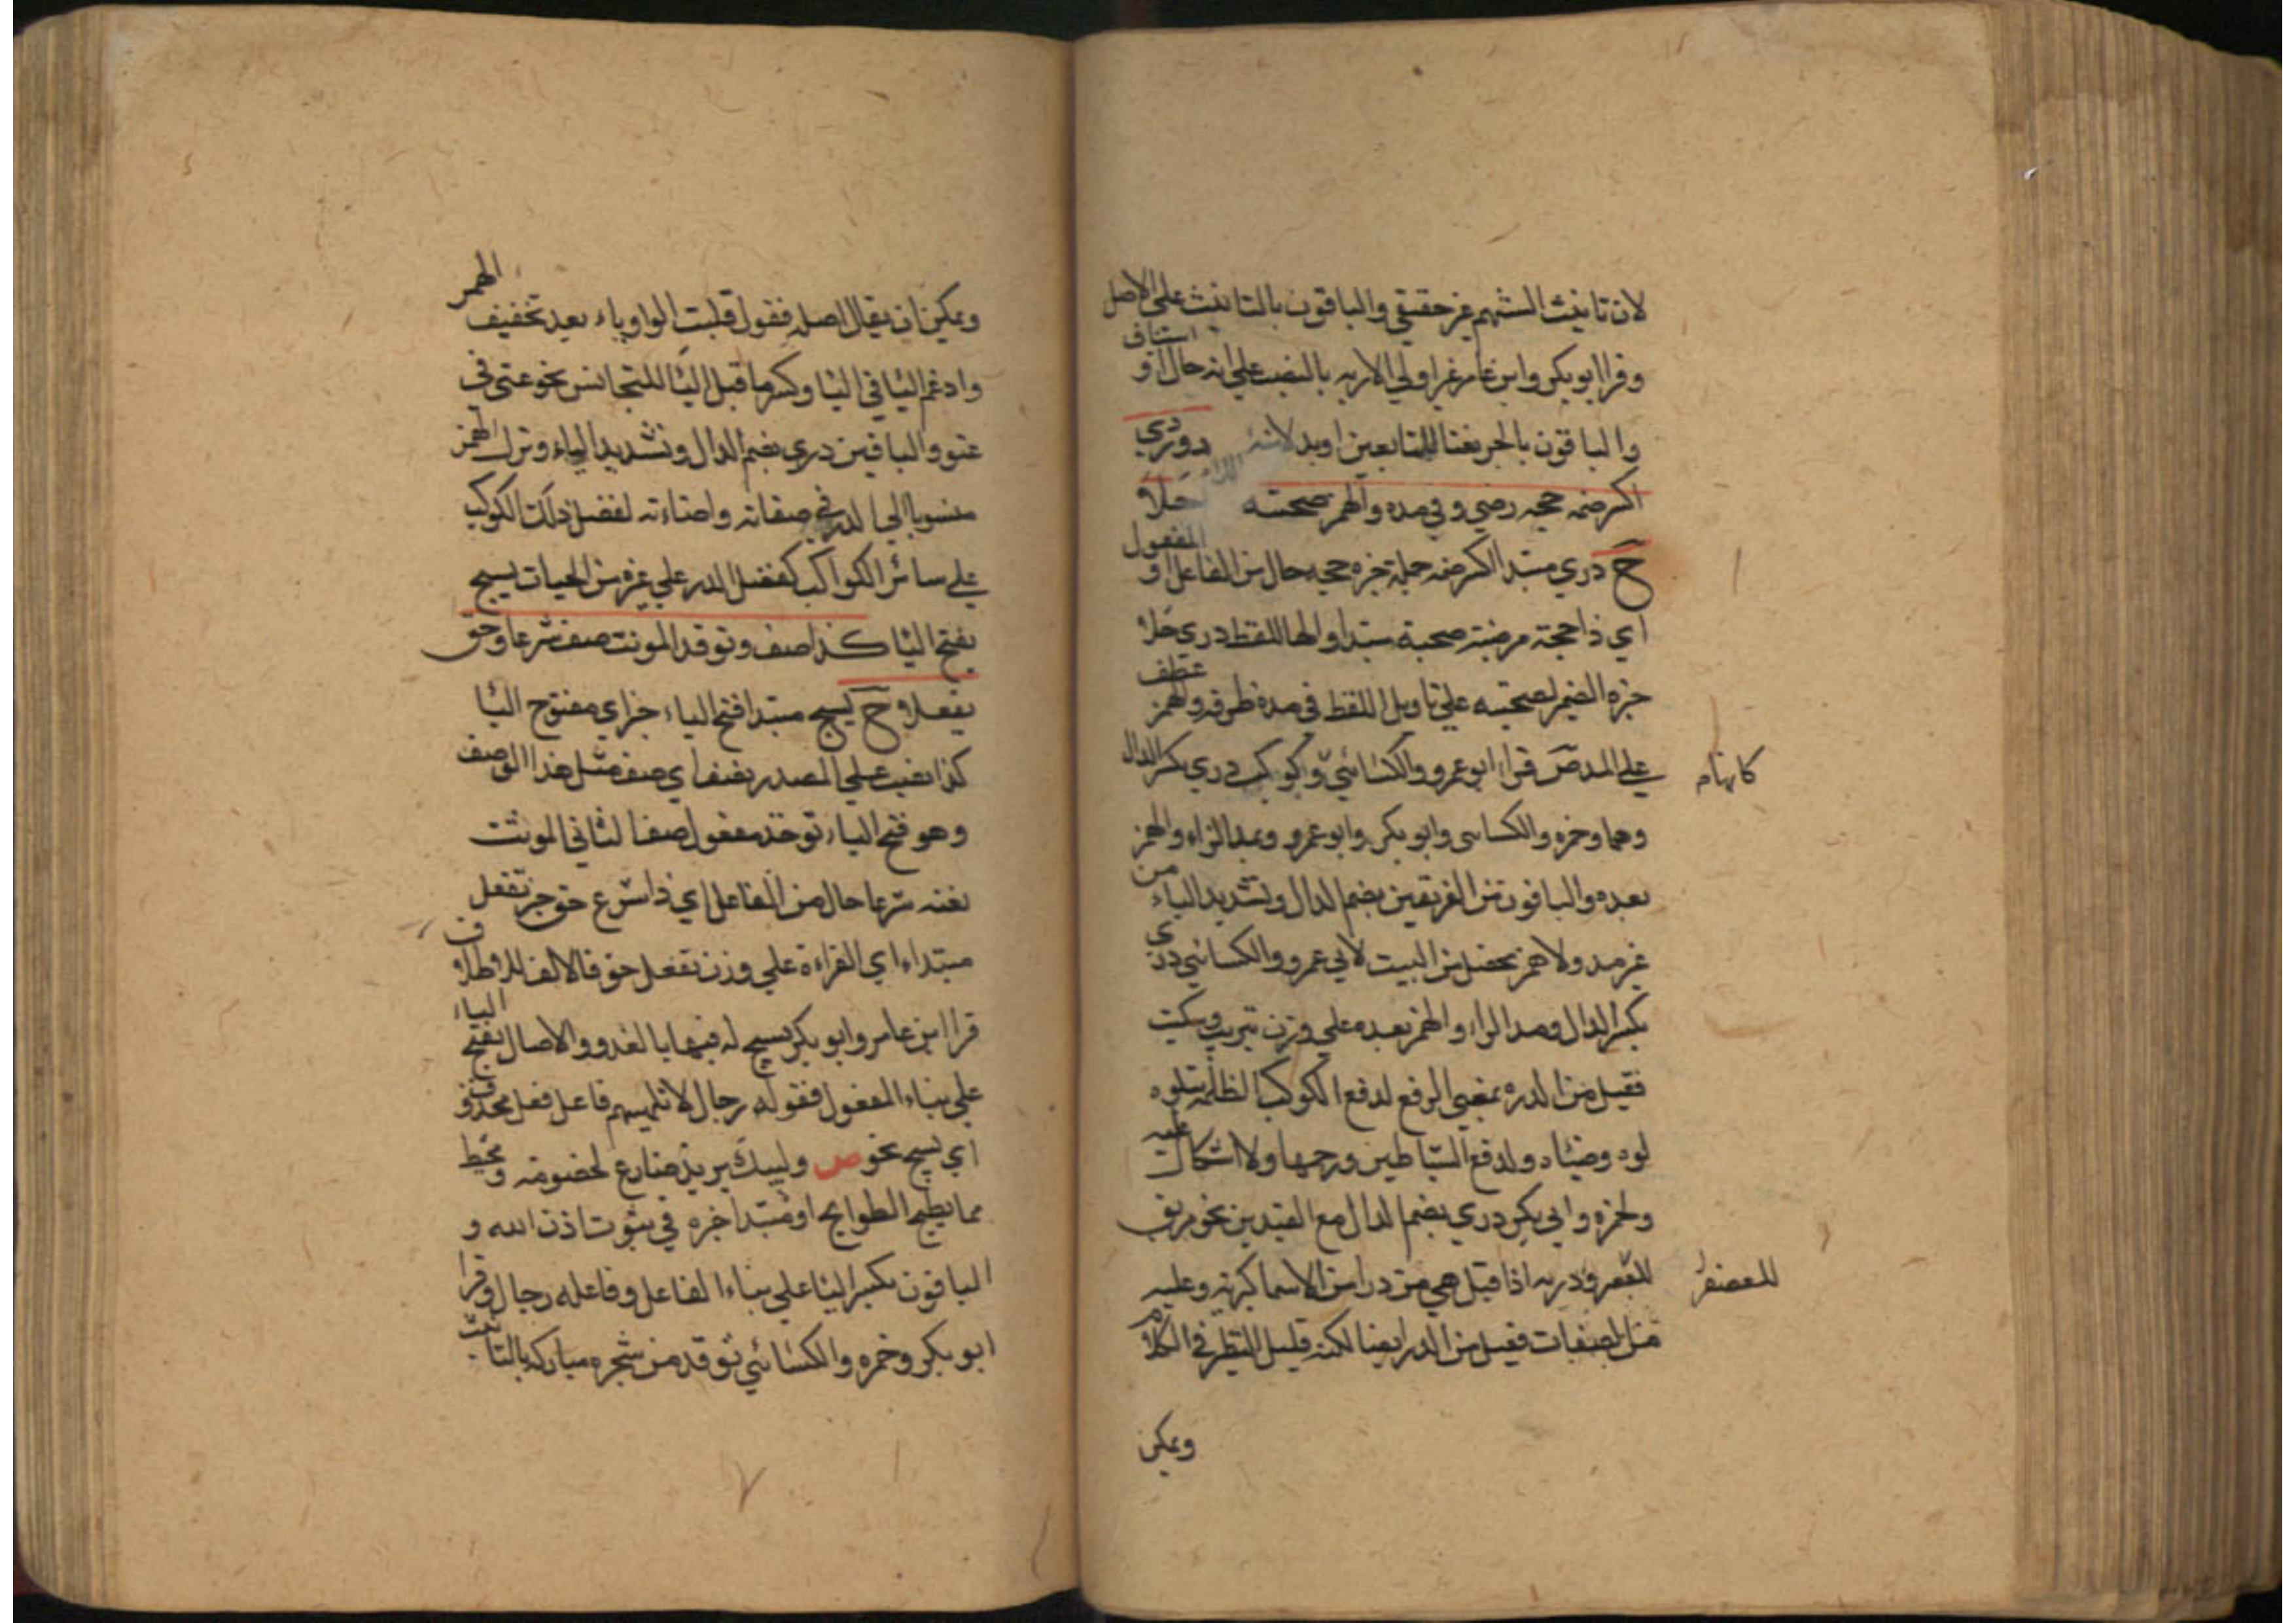 لان تانيث الشهم غير حقيقي والباقون بالتانيث على الاصل
وقرا ابو بكر وابن عامر غير اولي الاربه بالنصب على انه حال او
استناف
والباقون بالجر نعتا للتابعين او بدلا منه دودري
اكسر ضمه حجه رضي وفي مده والهمز صحبته حلا
ح دري مبتدا اكسر ضمه جمله خبره حجه حال من الفاعل او
المفعول
اي ذا حجة مرضية صحبته مبتدا والها للفظ دري حلا
خبره الضمير لصحبته على تاويل اللفظ في مده ظرفه والهمز
عطف
علي المد ص قراء ابو عمرو والكسائي وكوكب دري بكسر الدال
كابهام
وهما وحمزه والكسائى وابو بكر وابو عمرو وبمد الراء والهمز
بعده والباقون من الفريقين بضم الدال وتشديد الياء من
غير مد ولا همز فحصل من البيت لابي عمرو والكسائي دري
بكسر الدال ومد الراء والهمز بعده على وزن شريب وسكيت
فقيل من الدرء بمعنى الدفع لدفع الكوكب الظلمة
ضياه ولدفع الشياطين ورجمها ولا اشكال
عليه
ولحمزه وابي بكر دري بضم الدال مع القيدين نحو مريق
للعصفر
للعصفر ودريه اذا قيل هي من درا من الاسما كبريه وعليه
من الصفات فقيل من الدر ايضا لكنه قليل النظير في الكلام
ويمكن
ويمكن ان يقال اصله فعول قلبت الواو ياء بعد تخفيف
الهمز
وادغم اليا في اليا وكسر ما قبل اليا للتجانس نحو عتى في
عتو والباقين دري بضم الدال وتشديد الياء وترك الهمز
منسوبا الى الدر في صفائه واضاءته لفضل ذلك الكوكب
على سائر الكواكب كفضل الدر على غيره من الحبات يسبح
بفتح اليا كذا صف وتوقد المونث صف شرعا وحق
تفعلا ح يسبح مبتدا فتح الياء خبر اي مفتوح اليا
كذا نصب على المصدر بصف اي صف مثل هذا الوصف
وهو فتح الياء توقد مفعول صف الثاني المونث
نعته شرعا حال من الفاعل اي ذا شرع حق خبر تفعل
مبتداء اي القراءة على وزن تفعل حق فالالف للاطلاق
قرا ابن عامر وابو بكر يسبح له فيها بالغدو والاصال بفتح
الباء
على بناء المفعول فقوله رجال لا تلهيهم فاعل فعل محذوف
اي يسبح نحو ص وليبك يزيد ضارع لخصومه ومختبط
مما تطيح الطوايح او مبتدا خبره في بيوت اذن الله و
الباقون بكسر البا على بناء الفاعل وفاعله رجال وقرا
ابو بكر وحمزه والكسائي توقد من شجره مباركه بالتانيث